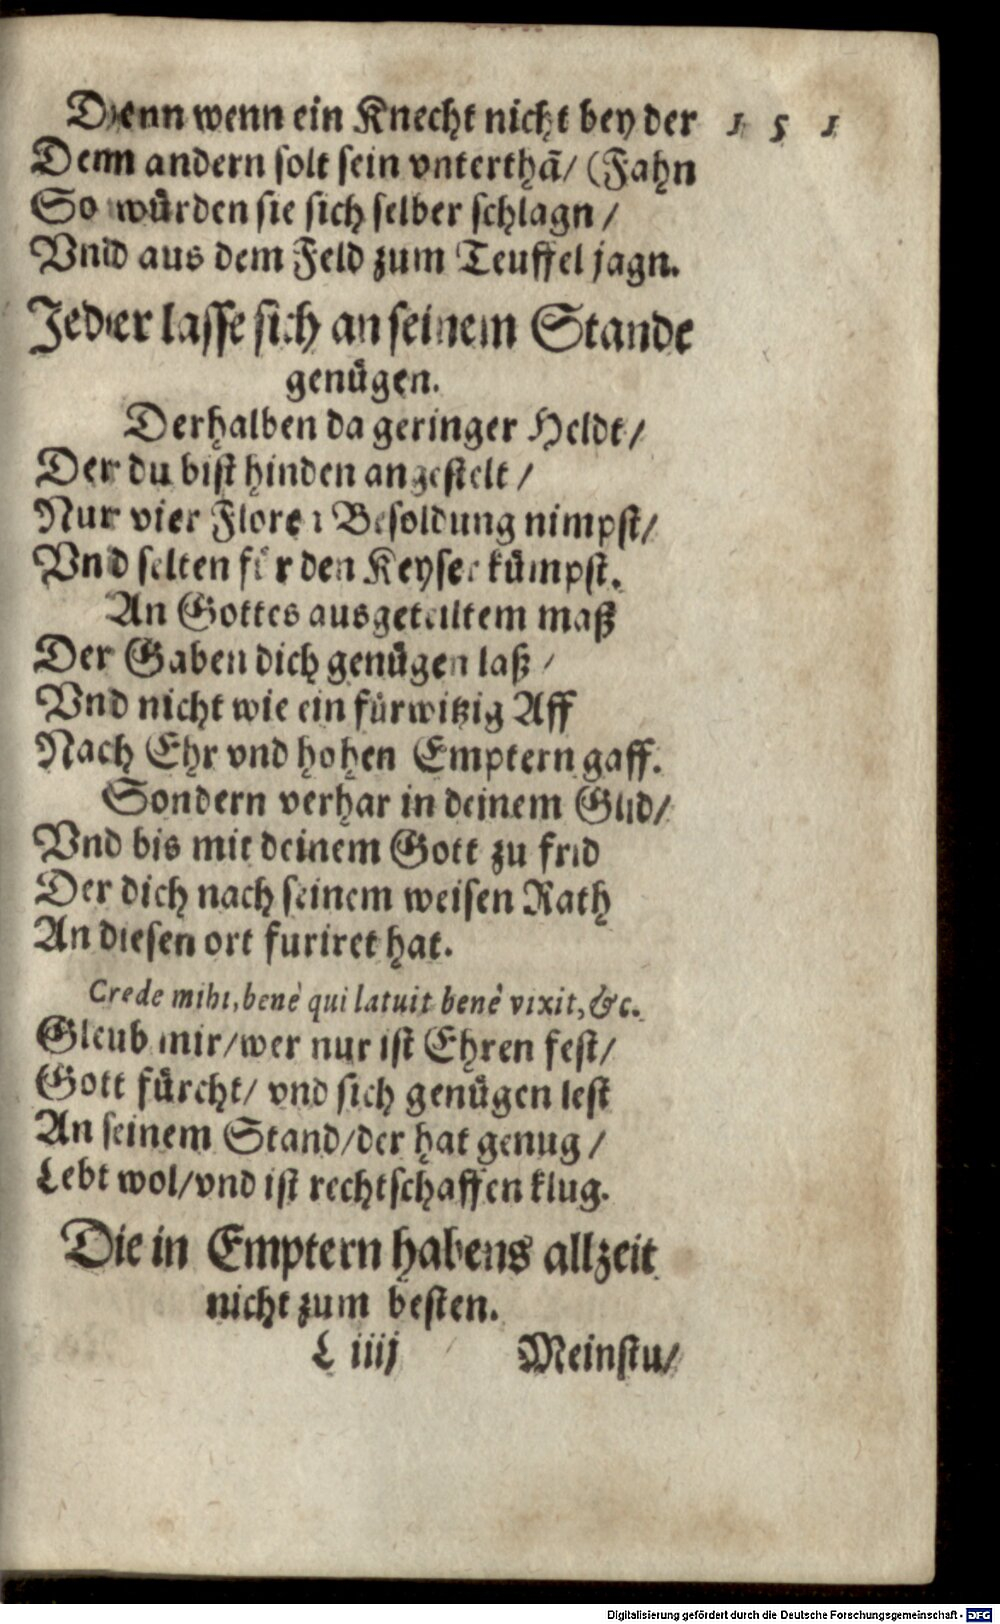 Denn wenn ein Knecht nicht bey der 151
Denn andern solt sein vnterthã/ (Fahn
So wuͤrden sie sich selber schlagn/
Vnd aus dem Feld zum Teuffel jagn.
Jeder lasse sich an seinem Stande
genuͤgen.
Derhalben da geringer Heldt/
Der du bist hinden angestelt/
Nur vier Floren Besoldung nimpst/
Vnd selten fuͤr den Keyser kuͤmpst.
An Gottes ausgeteiltem maß
Der Gaben dich genuͤgen laß/
Vnd nicht wie ein fuͤrwitzig Aff
Nach Ehr vnd hohen Emptern gaff.
Sondern verhar in deinem Glid/
Vnd bis mit deinem Gott zu frid
Der dich nach seinem weisen Rath
An diesen ort furiret hat.
Crede mihi, benè qui latuit benè vixit, &c.
Gleub mir/wer nur ist Ehren fest/
Gott fuͤrcht/ vnd sich genuͤgen lest
An seinem Stand/der hat genug/
Lebt wol/vnd ist rechtschaffen klug.
Die in Emptern habens allzeit
nicht zum besten.
L iiij Meinstu/
Digitalisierung gefördert durch die Deutsche Forschungsgemeinschaft - DFG